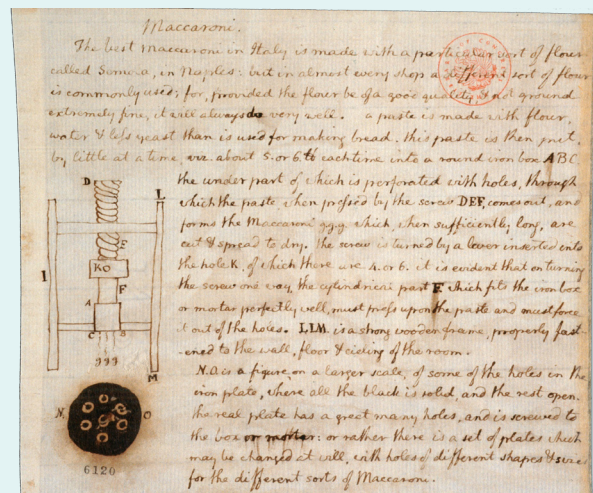 Maccaroni.
The best maccaroni in Italy is made with a particular sort of flour
called Semola, in Naples: but in almost every shop a different sort of flour
is commonly used; for, provided the flour be of a good quality & not ground
extremely fine, it will always do very well. a paste is made with flour,
water & less yeast than is used for making bread. this paste is then put,
by little at a time, viz. about 5. or 6. lb each time into a round iron box ABC
the under part of which is perforated with holes, through
which the paste, when pressed by the screw DEF, comes out, and
forms the Maccaroni g.g.g. which, when sufficiently long, are
cut & spread to dry. the screw is turned by a lever inserted into
the hole K, of which there are 4. or 6. it is evident that on turning
the screw one way, the cylindrical part F. which fits the iron box
or mortar perfectly well, must press upon the paste and must force
it out of the holes. LLM. is a strong wooden frame, properly fast-
-ened to the wall, floor & cieling of the room.
N.O. is a figure, on a larger scale, of some of the holes in the
iron plate, where all the black is solid, and the rest open.
the real plate has a great many holes, and is screwed to
the box or mortar: or rather there is a set of plates which
may be changed at will, with holes of different shapes & sizes
for the different sorts of Maccaroni.
D
L
I
E
KO
F
A
C
B
ggg
M
N.
O
6120